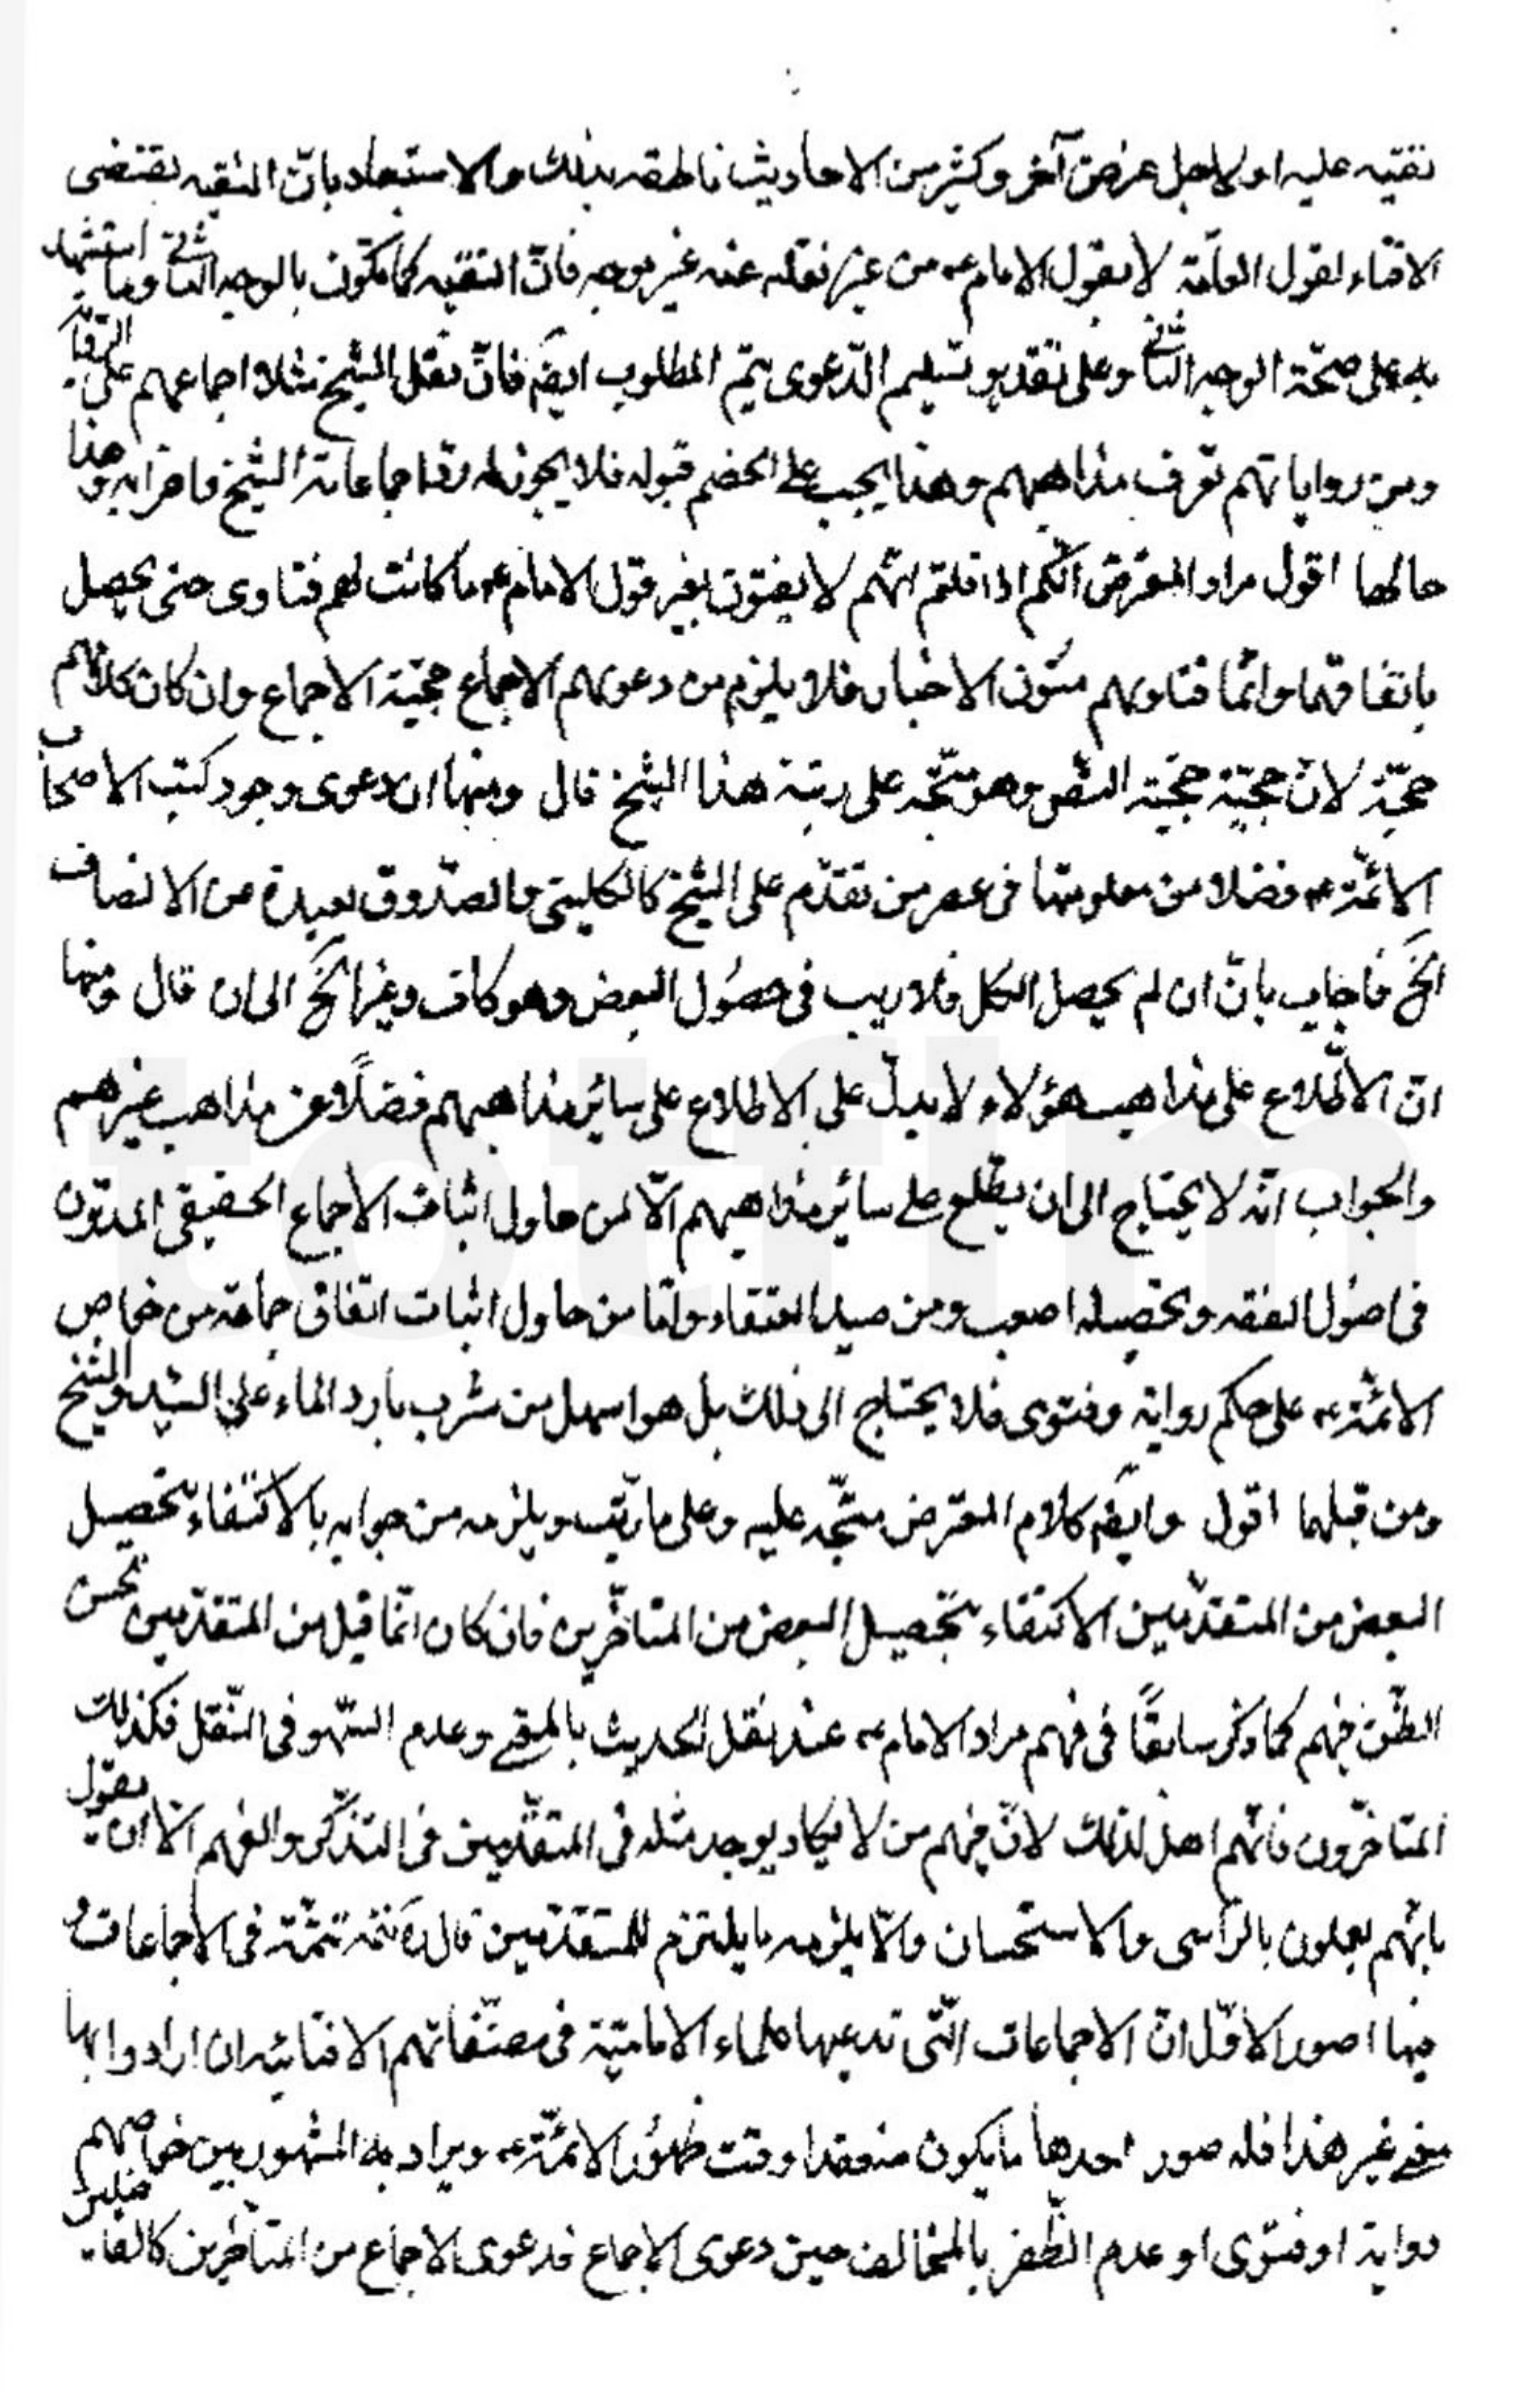 تقيّه عليه او لاجل غرض آخر وكثير من الاحاديث ناطقه بذلك والاستبعاد بانّ التقيه يقتضى
الافتاء لقول العامّة لا بقول الامام ع من غير نقله عنه غير موجه فانّ التقيّه كما يكون بالوجه الثانى وما استشهد
به على صحّة الوجه الثانى وعلى تقدير تسليم الدّعوى يتمّ المطلوب ايضَ فانّ نقل الشيخ مثلا اجماعهم على
ومن رواياتهم تعرف مذاهبهم وهذا يجب على الخصم قبوله فلا يجوز له ردّ اجماعات الشيخ واضرابه وهذا
حالها اقول مراد المعترض انّكم اذا قلتم انّهم لا يفتون بغير قول الامام ع ما كانت لهم فتاوى حتى يحصل
باتفاقها وانّما فتاويهم متون الاخبار فلا يلزم من دعويهم الاجماع حجيّة الاجماع وان كان كلامهم
حجّة لانّ حجيّته حجيّة النقل وهو متّجه على ربتة هذا الشيخ قال ومنها ان دعوى وجود كتب الاصحاب
الائمّة ع فضلا من معلوميتها فى عصر من تقدّم على الشيخ كالكلينى والصّدوق بعيدة من الانصاف
الخَ فاجاب بانّ ان لم يحصل الكل فلا ريب فى حصُول البعض وهو كاف وغير الخَ الى ان قال ومنها
انّ الاطّلاع على مذاهب هؤلاء لا يدلّ على الاطلاع على سائر مذاهبهم فضلًا عن مذاهب غيرهم
والجواب انّه لا يحتاج الى ان يطّلع على سائر مذاهبهم الّا لمن حاول اثبات الاجماع الحقيقى المدوّن
فى اصُول الفقه وتحصيله اصعب ومن صيد العنقاء وامّا من حاول اثبات اتفاق جماعة من خواص
الائمّة ع على حكم رواية وفتوى فلا يحتاج الى ذلك بل هو اسهل من شرب بارد الماء على السّيد والشّيخ
ومن قبلهما اقول وايضَ كلام المعترض متّجه عليه وعلى ما رتّب ويلزمه من جوابه بالاكتفاء بتحصيل
البعض من المتقدّمين الاكتفاء بتحصيل البعض من المتاخّرين فان كان انّما قيل من المتقدّمين لحسن
الظّن فيهم كما ذكر سابقًا فى فهم مراد الامام ع عند نقل الحديث بالمعنى وعدم السّهو فى النّقل فكذلك
المتاخّرون فانّهم اهل لذلك لانّ فيهم من لا يكاد يوجد مثله فى المتقدّمين فى التذكّر والفهم الّا ان يقول
بانّهم يعملون بالرّأى والاستحسان والّا يلزمه ما يلتزم للمتقدّمين قال ره تتمّة فى الاجماعات و
فيها امور الاوّل انّ الاجماعات الّتى تدعيها علماء الاماميّة فى مصنّفاتهم الافتائيه ان ارادوا بها
معنى غير هذا فله صور احدها ما يكون منعقدا وقت ظهُور الائمّة ع ويراد به المشهور بين خواصهم
رواية او فتوى او عدم الظّفر بالمخالف حين دعوى الاجماع فدعوى الاجماع من المتاخّرين كالفاضلين